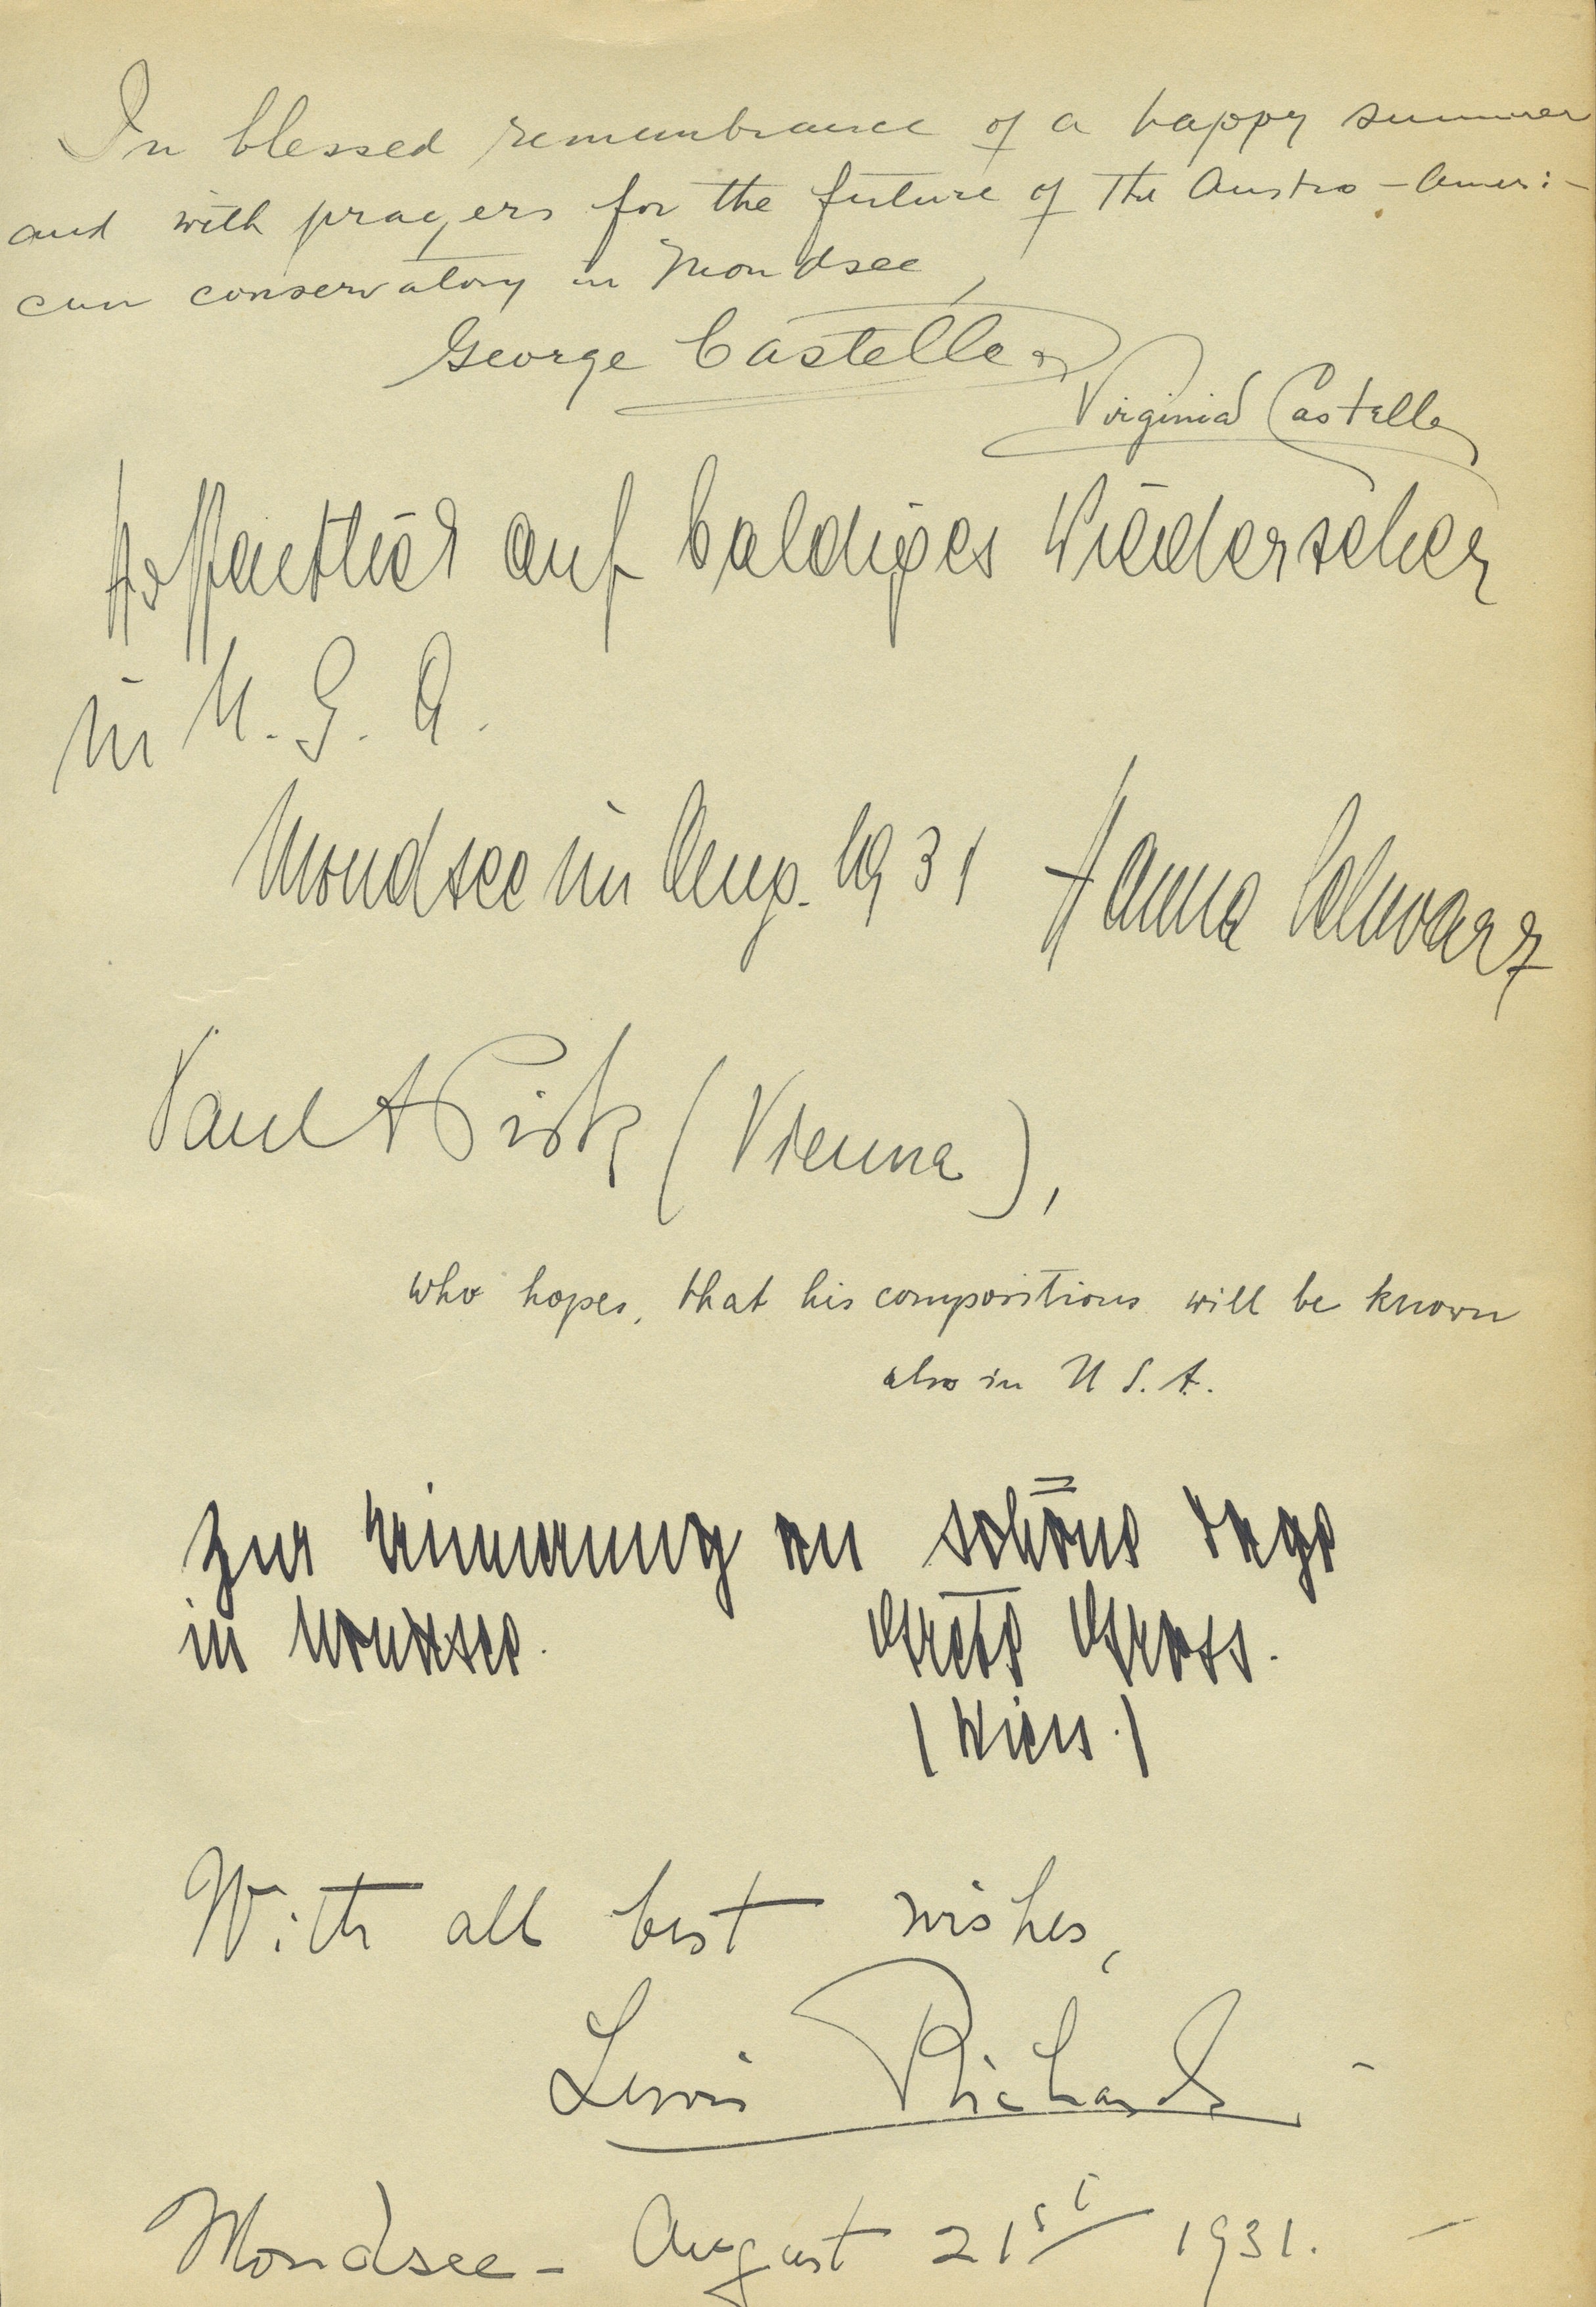 In blessed remembrance of a happy summer
and with prayers for the future of The Austro-Ameri-
can conservatory in Mondsee,
George Castelle
Virginia Castelle
Hoffentlich auf baldiges Wiedersehen
in U.S.A.
Mondsee im Aug. 1931 Hanna Schwarz
Paul A Pisk (Vienna),
who hopes, that his compositions will be known
also in U S. A.
Zur Erinnerung an schöne Tage
in Mondsee. Grete Gross.
(Wien.)
With all best wishes,
Lewis Richards
Mondsee - August 21st 1931.